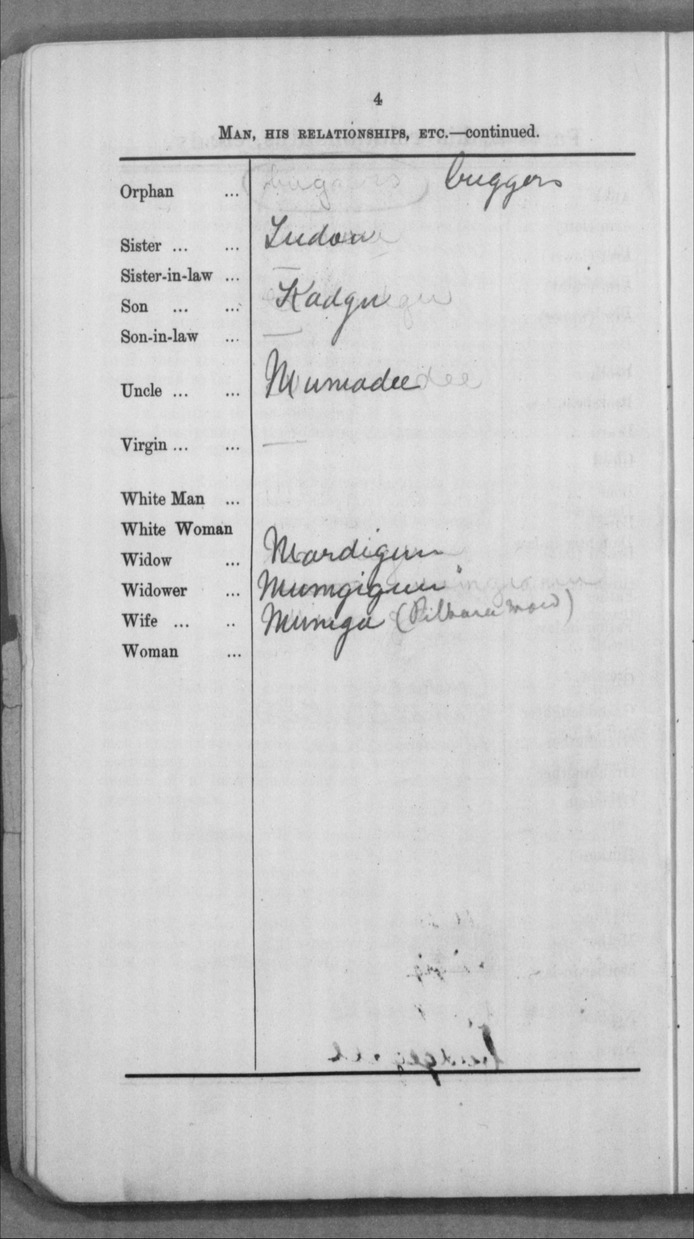 4
MAN, HIS RELATIONSHIPS, ETC.—continued.
Orphan ... buggers
Sister ... ... Ludoa
Sister-in-law ... —
Son ... ... Kadgu
Son-in-law ... —
Uncle ... ... Mumadee
Virgin ... ... —
White Man ...
White Woman
Widow ... Mardigun
Widower ... Mumgigun
Wife ... .. Muniga (Pilbara word)
Woman ...